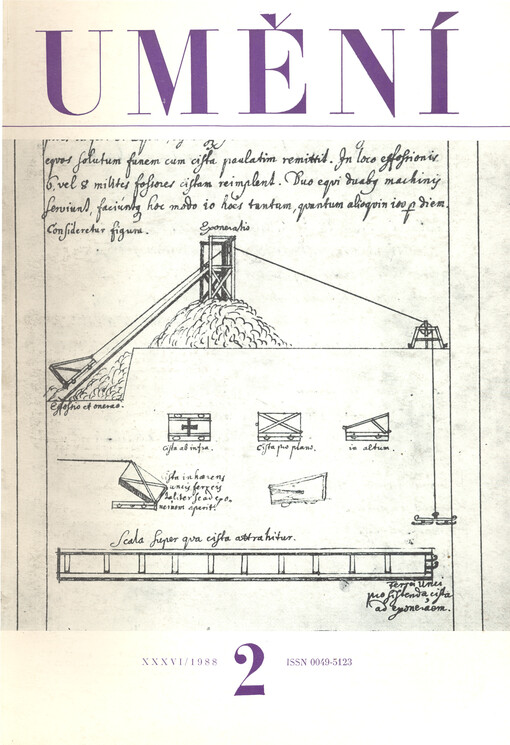 UMĚNÍ
equos solutum funem cum cista paulatim remittit. In loco effosionis
6, vel 8 milites fossores cistam reimplent. Duo equi duabq machinis
serviunt, faciuntq hoc modo 10 hoēs tantum, quantum alioquin 100 p diem.
Consideretur figura.
Exoneratio
Effossio et onerao.
Cista ab infra.
Cista pro plano.
in altum.
ista inhærens
uncis ferreis
taliter se ad exo-
neraom aperit.
Scala super qua cista attrahitur.
Ferrei Unci
pro sistenda cista
ad exoneraōem.
XXXVI/1988
2
ISSN 0049-5123